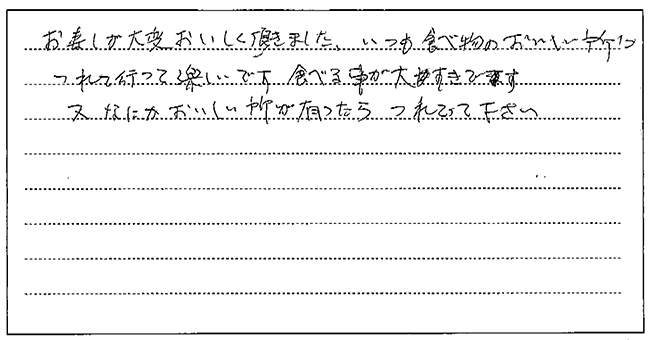 お寿しが大変おいしく頂きました、いつも食べ物のおいしい所に
つれて行って楽しいです 食べる事が大好すきでます
又なにかおいしい所が有ったら つれてって下さい